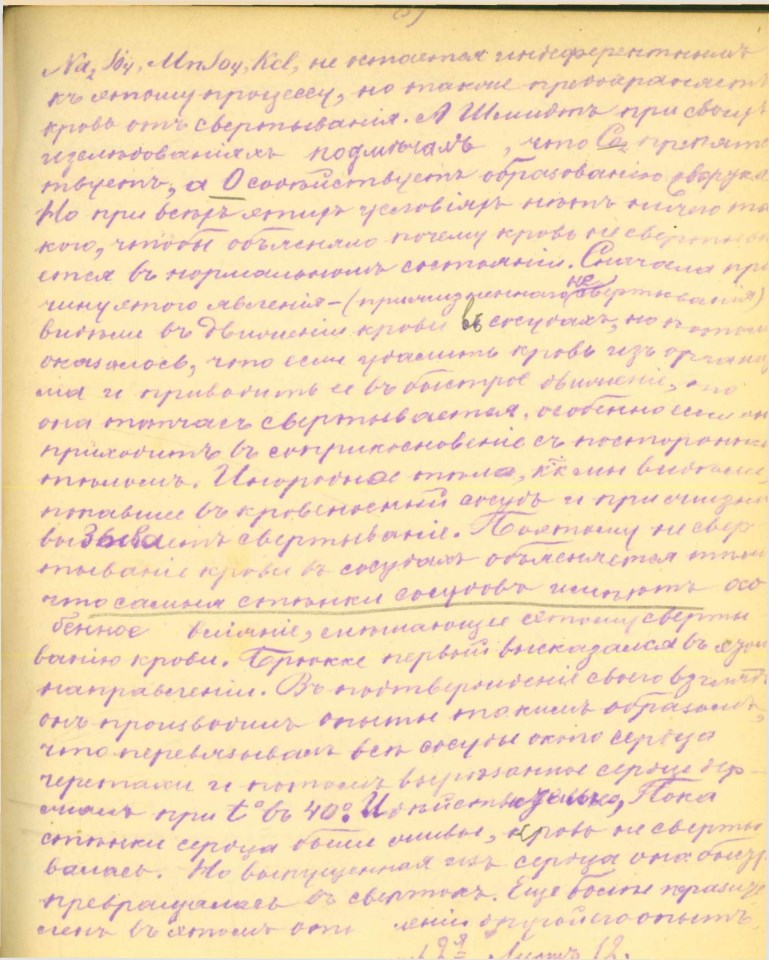 Na₂ So₄, MnSo₄, Kcl, не остается индеферентнымъ
къ этому процессу, но также предохраняетъ
кровь отъ свертыванія. А Шмидтъ при своихъ
изслѣдованіяхъ подмѣчалъ, что Co₂ препят
твуетъ, а О содѣйствуетъ образованію
Но при всѣхъ этихъ условіяхъ нѣтъ ничего та
кого, чтобы объясняло почему кровь не сверты
ется въ нормальномъ состояніи. Сначала при
чину этого явленія – (прижизненнаго не свертыванія)
видѣли въ движеніи крови въ сосудахъ, но потомъ
оказалось, что если удалить кровь изъ органи
ма и приводить ее въ быстрое движеніе, то
она тотчасъ свертывается, особенно если он
приходитъ въ соприкосновеніе съ посторонни
тѣломъ. Инородное тѣло, к҃къ мы видѣли,
попавшее въ кровеносный сосудъ и при жизни
вызываетъ свертываніе. Поэтому не свер
тываніе крови въ сосудахъ объясняется тѣмъ
что самыя стѣнки сосудовъ имѣютъ осо
бенное вліяніе, мѣшающее этому сверты
ванію крови. Брюкке первый высказался въ этом
направленіи. Въ подтвержденіе своего взгляда
онъ производилъ опыты такимъ образомъ,
что перевязывалъ всѣ сосуды около сердца
черепахи и потомъ вырѣзанное сердце дер-
жалъ при t° въ 40°. И Пока
стѣнки сердца были живы, кровь не сверты
валась. Но выпущенная изъ сердца она быстр
превращалась въ свертокъ. Еще болѣе
ленъ въ этомъ отн леніи другой его опытъ.
Листъ 12.